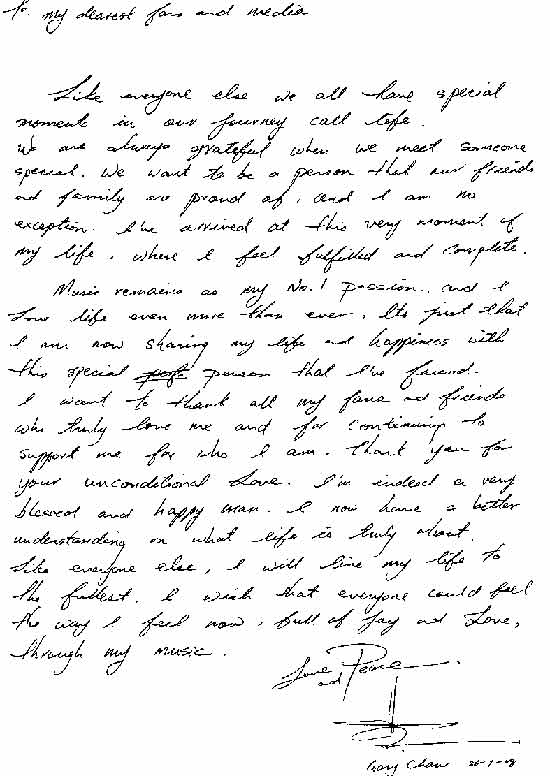 To my dearest fans and media
Like everyone else we all have special
moment in our journey call life.
We are always grateful when we meet someone
special. We want to be a person that our friends
and family are proud of, and I am no
exception. I've arrived at this very moment of
my life, where I feel fulfilled and complete.
Music remains as my No.1 passion, and I
love life even more than ever. Its just that
I am now sharing my life and happiness with
this special person that I've found.
I want to thank all my fans and friends
who truly love me and for continuing to
support me for who I am. Thank you for
your unconditional Love. I'm indeed a very
blessed and happy man. I now have a better
understanding on what life is truly about.
Like everyone else, I will live my life to
the fullest. I wish that everyone could feel
the way I feel now, full of Joy and Love,
through my music.
Love and Peace
Gary Chaw